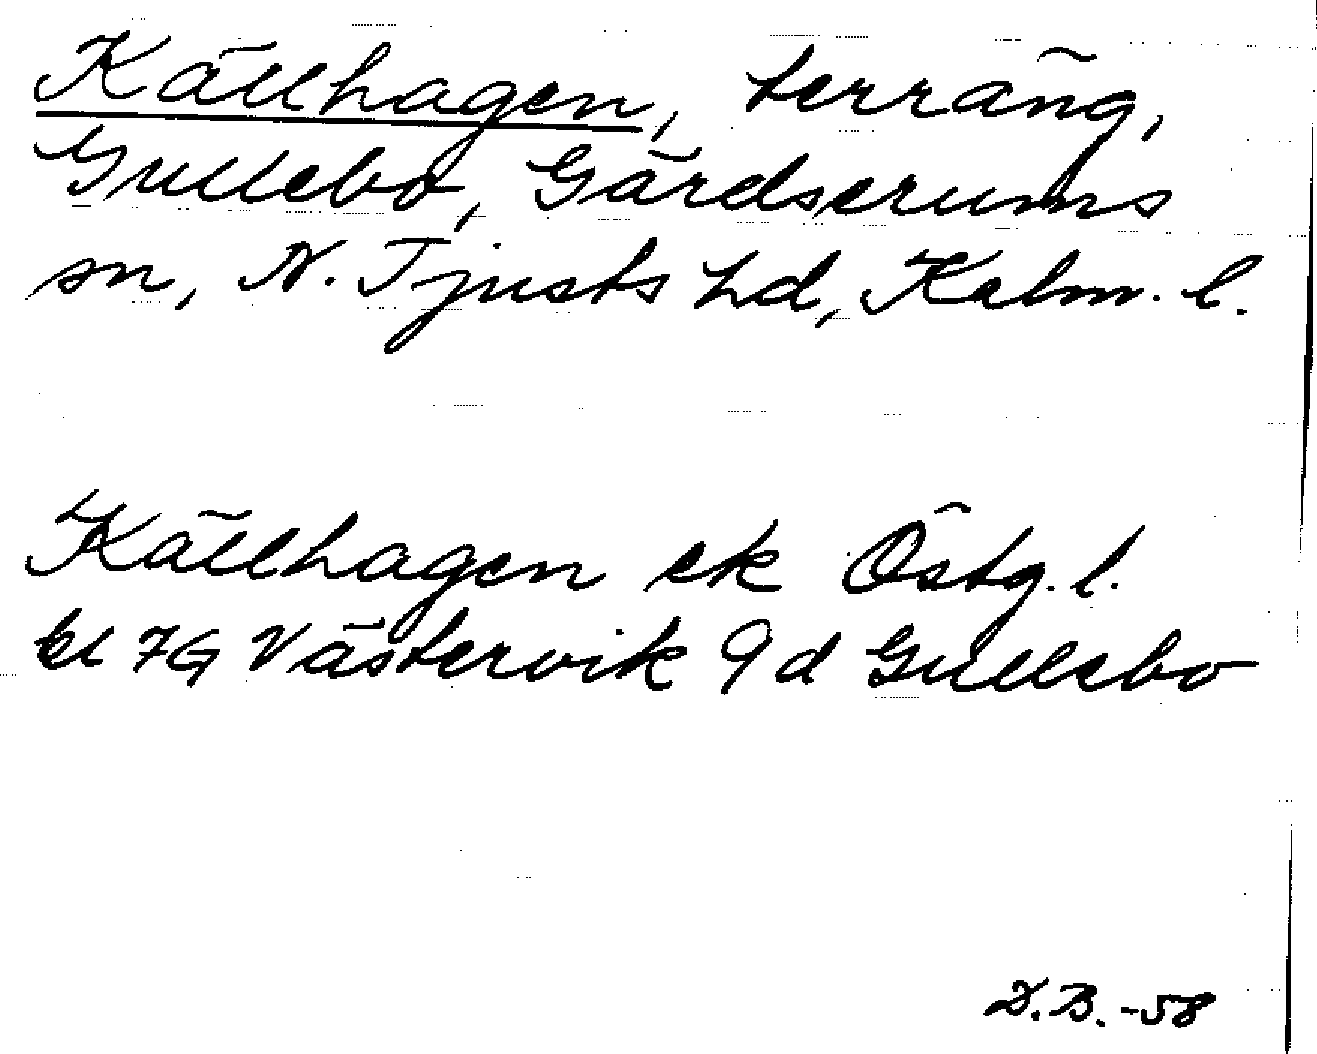 Källhagen, terräng,
Gullebo, Gärdserums
sn, N. Tjusts hd, Kalm. l.
Källhagen ek Östg. l.
bl 7G Västervik 9d Gullebo
D.B.-58